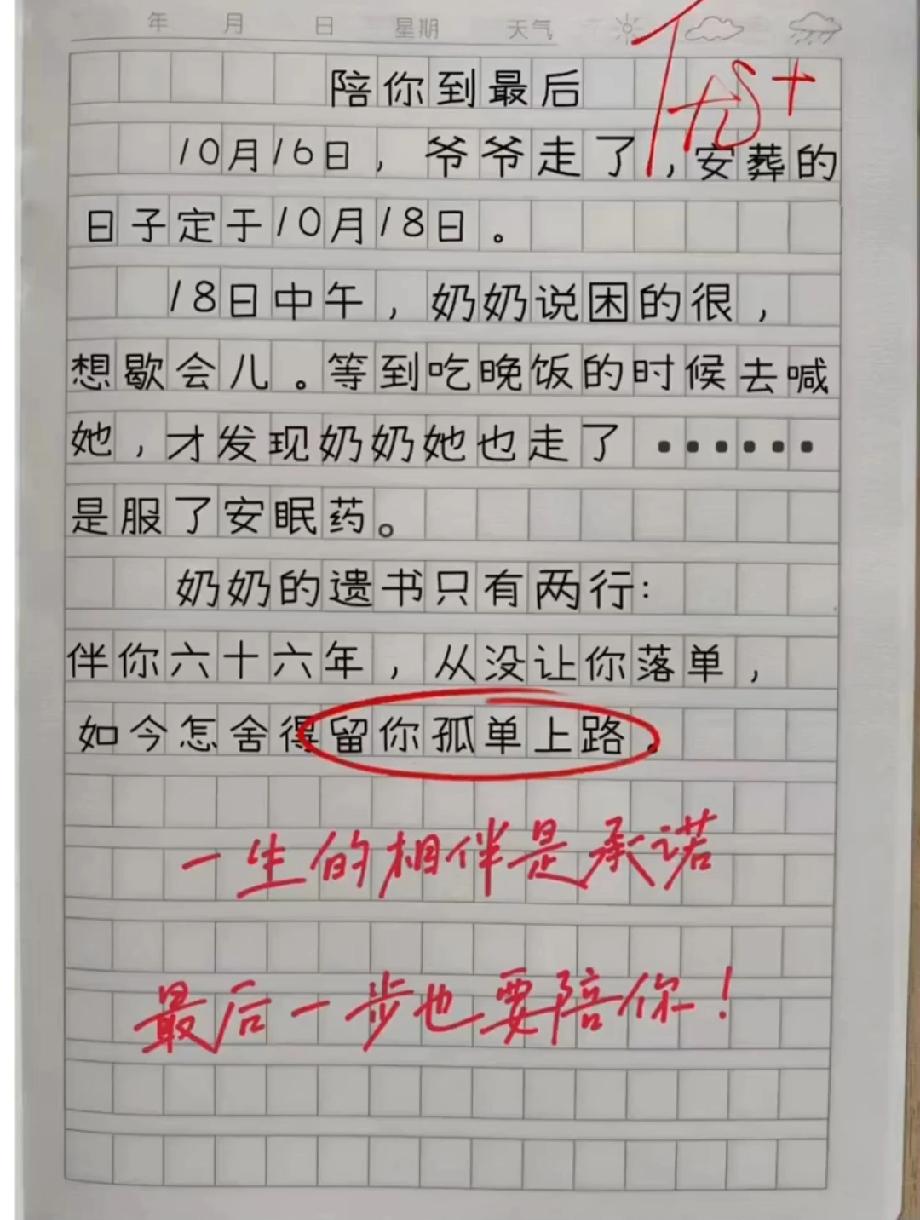 年 月 日 星期 天气
优+
陪你到最后
10月16日，爷爷走了，安葬的
日子定于10月18日。
18日中午，奶奶说困的很，
想歇会儿。等到吃晚饭的时候去喊
她，才发现奶奶她也走了······
是服了安眠药。
奶奶的遗书只有两行：
伴你六十六年，从没让你落单，
如今怎舍得留你孤单上路。
一生的相伴是承诺
最后一步也要陪你！